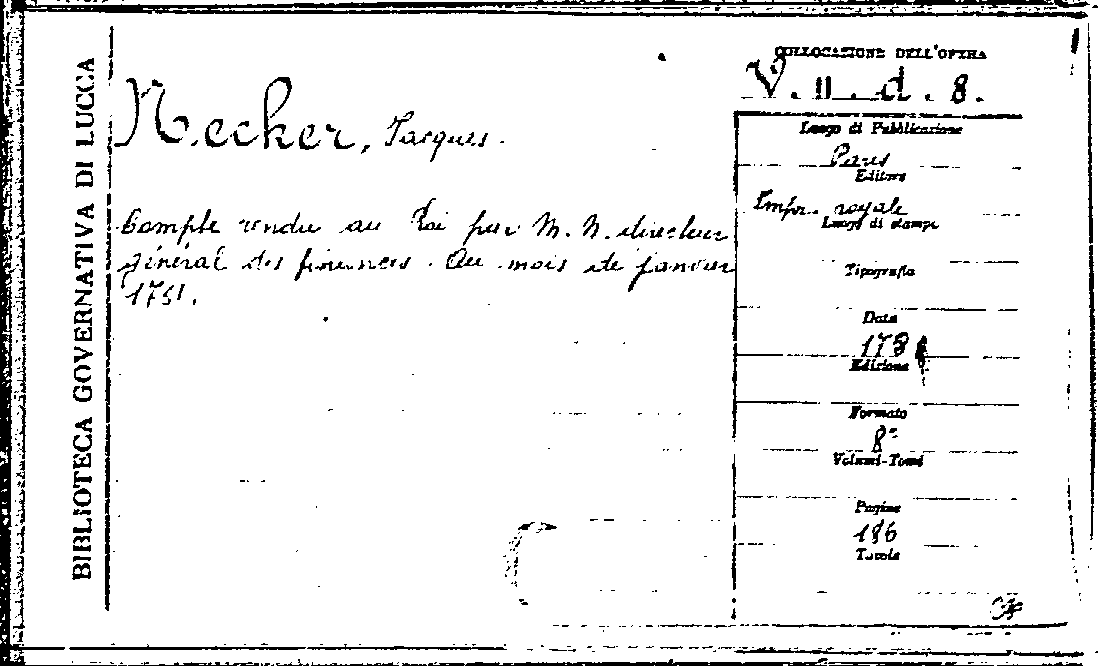 BIBLIOTECA GOVERNATIVA DI LUCCA
Necker, Jacques.
Compte rendu au Roi par M. N. directeur
général des finances. Au mois de janvier
1781.
COLLOCAZIONE DELL'OPERA
V. II. d. 8.
Luogo di Pubblicazione
Paris
Editore
Impr. royale
Luogo di stampa
Tipografia
Data
1781
Edizione
Formato
8°
Volumi-Tomi
Pagine
Tavole